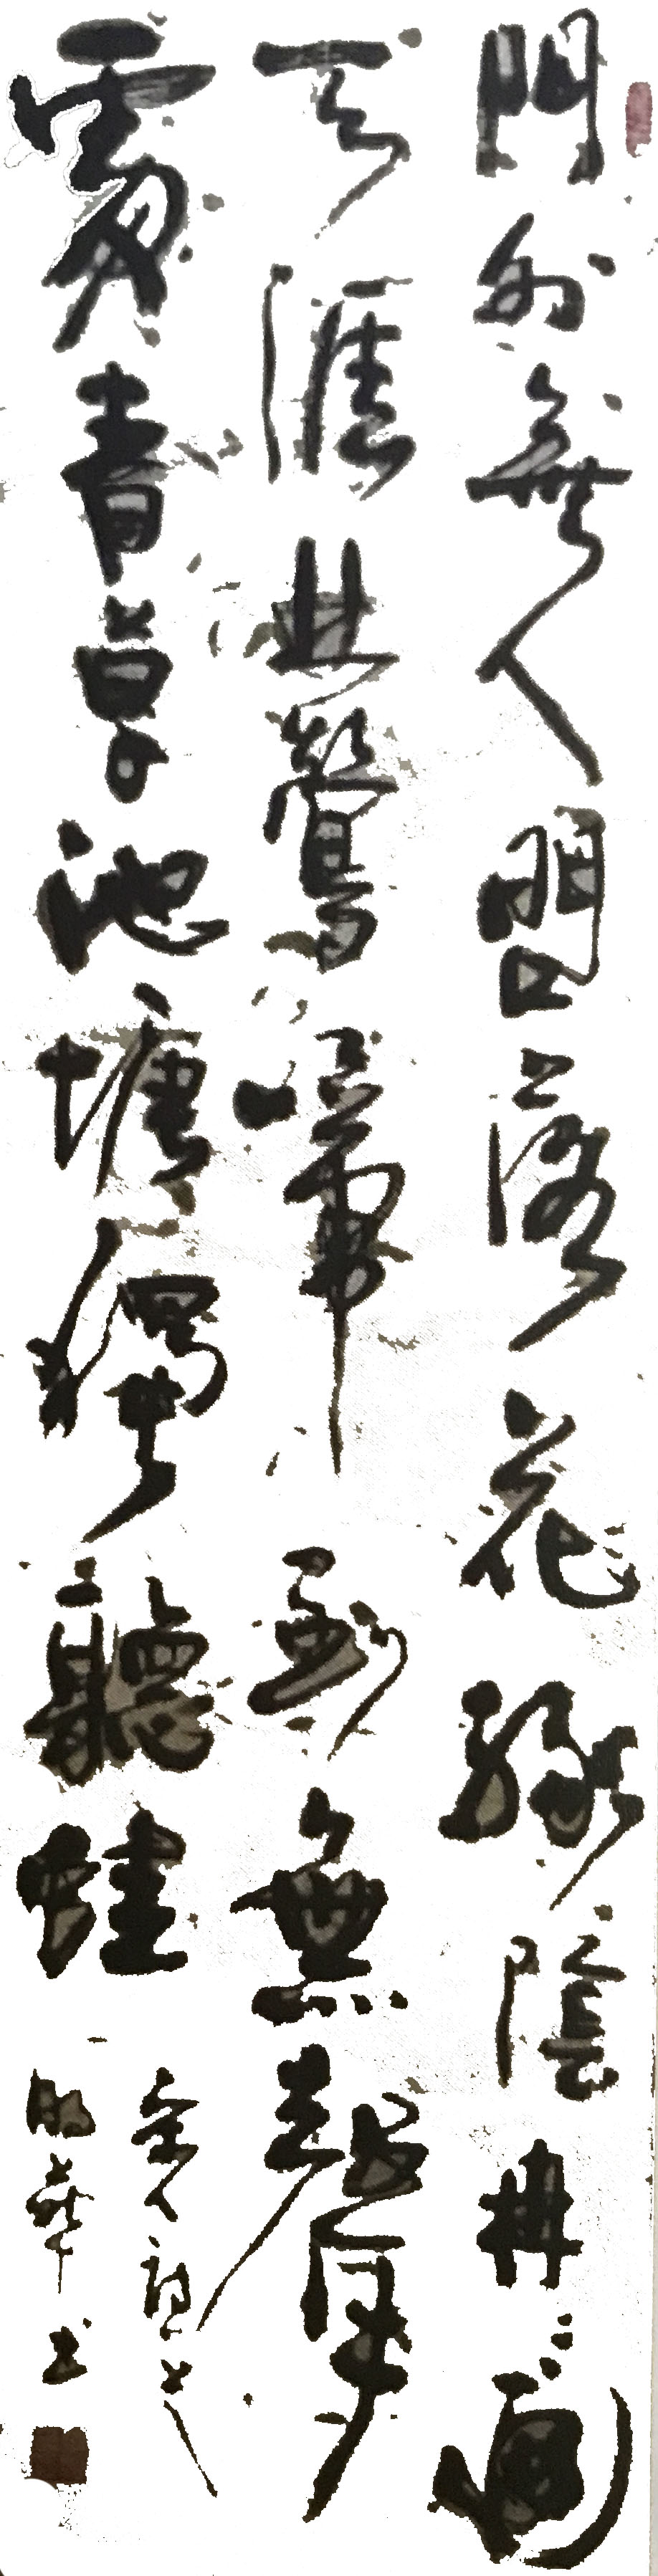 門外無人問落花綠陰冉々遍
天涯林鶯啼到無聲
處青草池塘獨聽蛙
宋人詩
明華書